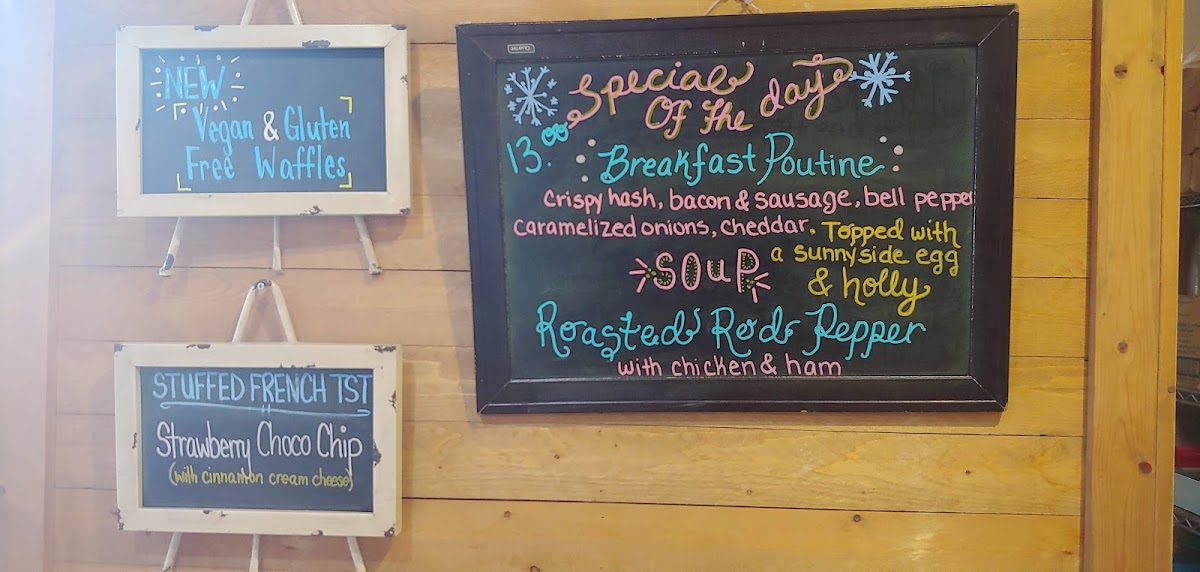 NEW
Vegan & Gluten
Free Waffles
STUFFED FRENCH TST
Strawberry Choco Chip
(with cinnamon cream cheese)
Special
Of The day
13.00
Breakfast Poutine
Crispy hash, bacon & sausage, bell pepper
Caramelized onions, cheddar. Topped with
a sunnyside egg
& holly
Soup
Roasted Red Pepper
with chicken & ham